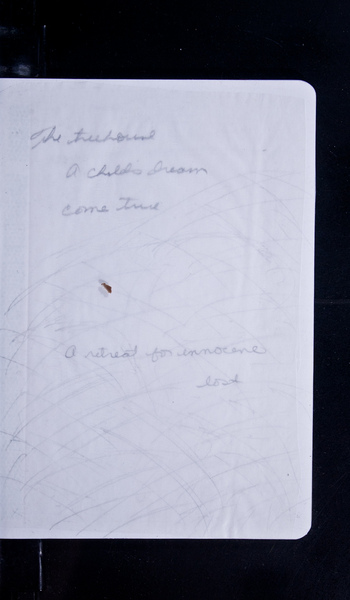 The treehouse
A childs dream
come true
A retreat for innocene
lost